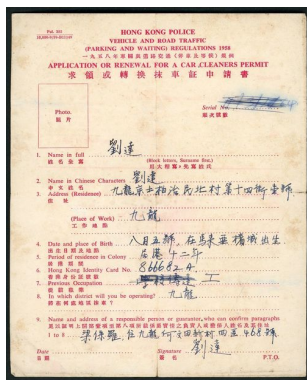 HONG KONG POLICE
VEHICLE AND ROAD TRAFFIC
(PARKING AND WAITING) REGULATIONS 1958
APPLICATION OR RENEWAL FOR A CAR CLEANERS PERMIT
求領或轉換抹車証申請書
Photo.
相片
Serial No.
1. Name in full 劉達
姓名全寫
(Block letters, Surname first.)
2. Name in Chinese Characters 劉達
中文姓名
3. Address (Residence) 九龍京士柏治民北村第十四街壹號
住址
(Place of Work) 九龍
工作地點
4. Date and place of Birth 八月五號, 在馬來亞檳城出生
出生日期及地點
5. Period of residence in Colony 居港十二年
6. Hong Kong Identity Card No. 866682A
7. Previous Occupation 工
8. In which district will you be operating? 九龍
9. Name and address of a responsible person or guarantor, who can confirm paragraphs
1 to 8 梁保羅, 住九龍何文田新村四座468號
Date
日期
Signature 劉達
簽名
P.T.O.